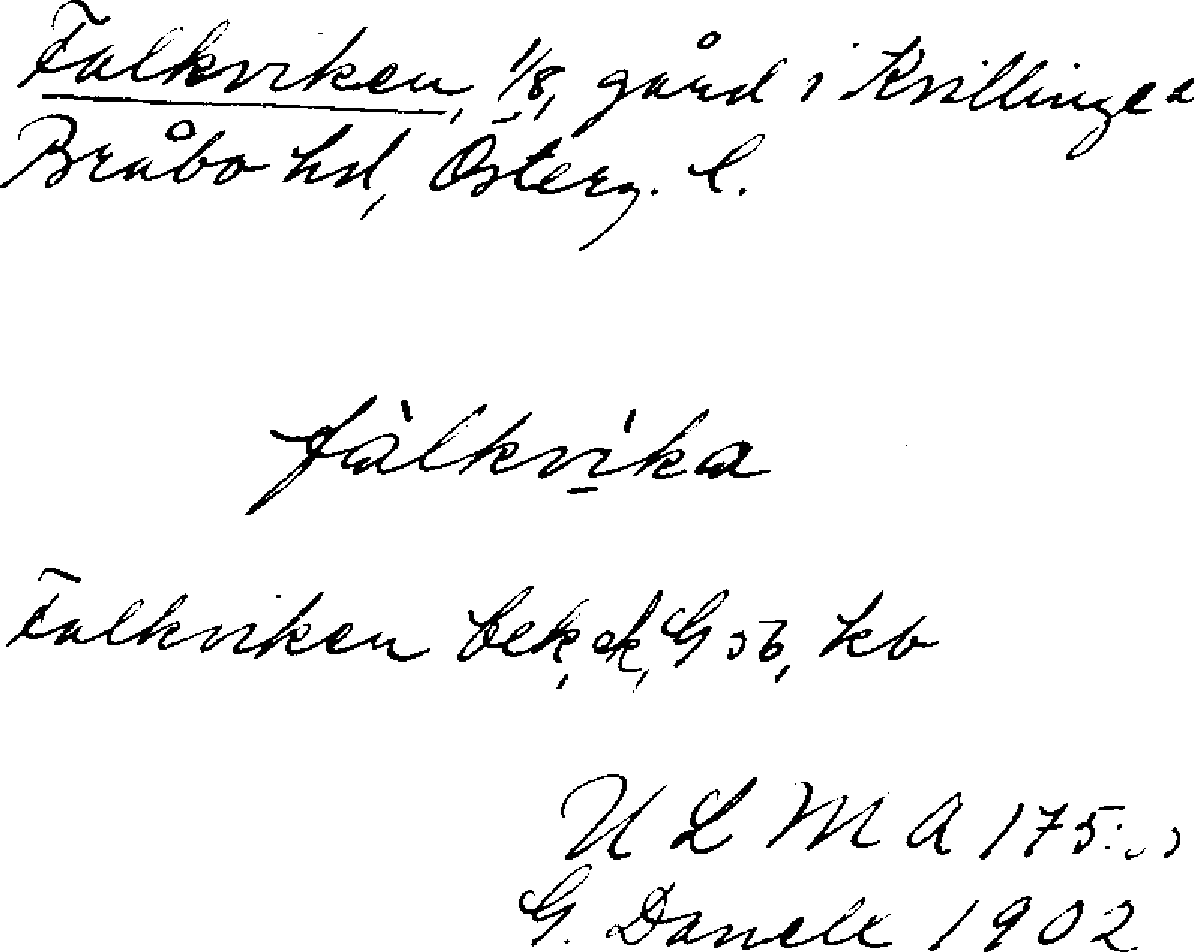 Falkviken, 1/8, gård i Kvillinge a
Bråbo hd, Österg. l.
fàlkvi̠ka
Falkviken bek, ek, G 56, kb
U L M A 175:
G. Danell 1902